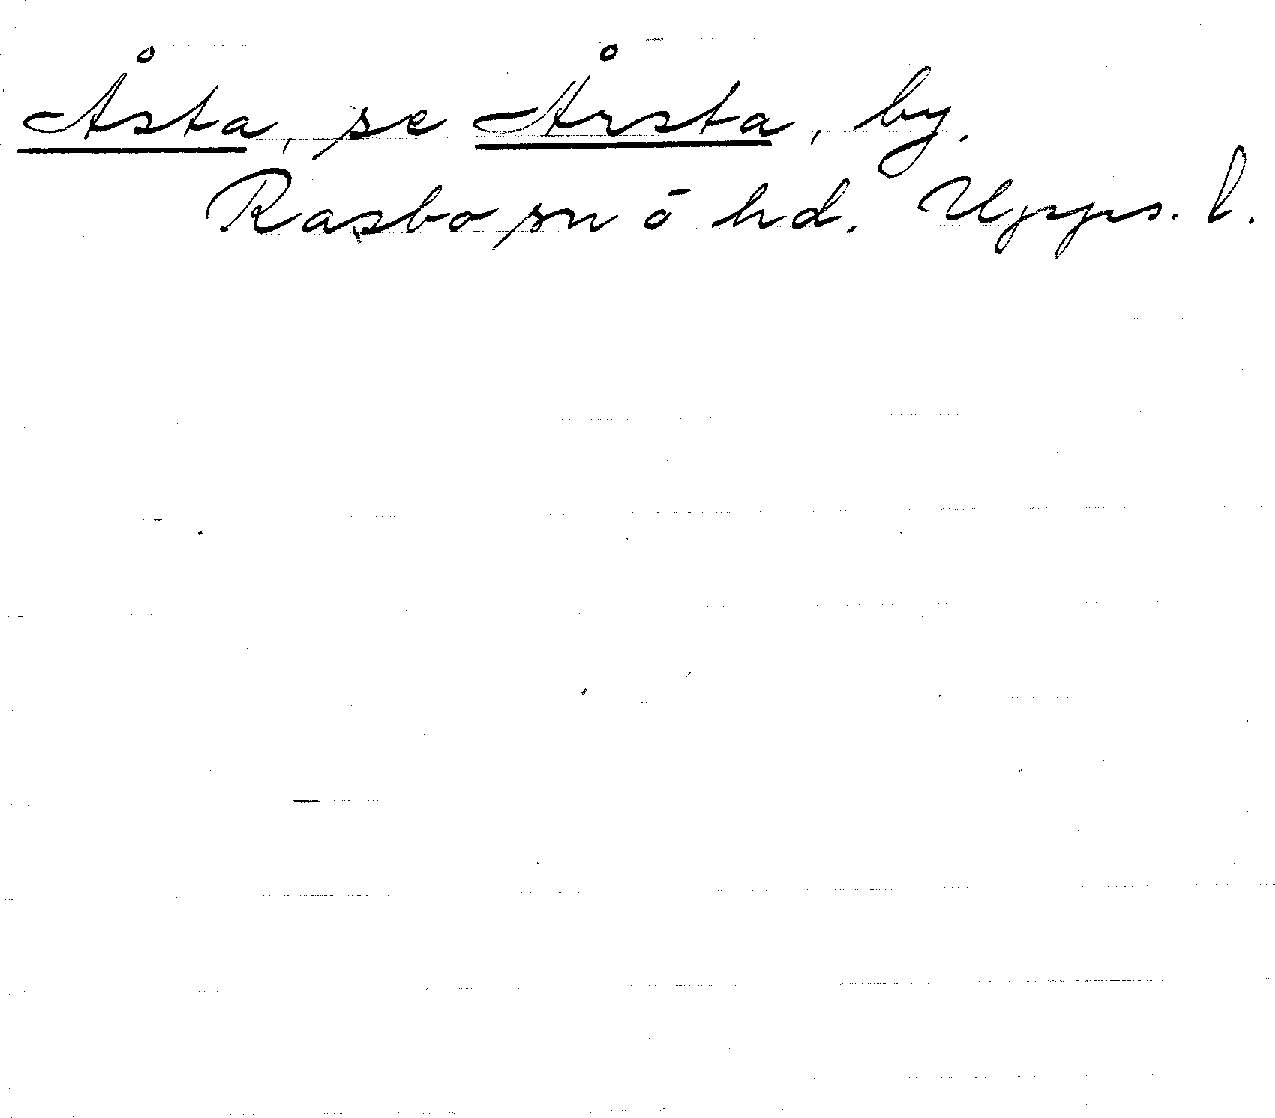 Åsta, se Årsta, by.
Rasbo sn o hd. Upps. l.